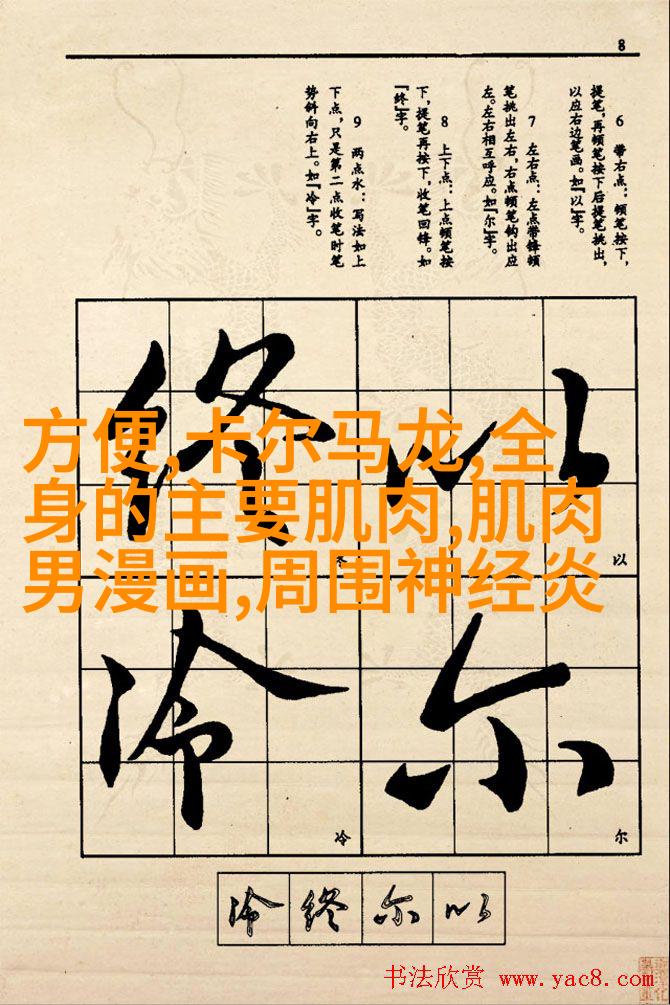 8
6 带右点：顿笔按下，
提笔，再顿笔按下后提笔挑出，
以应右边笔画。如『以』字。
7 左右点：左点带锋顿
笔挑出左右，右点顿笔钩出应
左。左右相互呼应。如『尔』字。
8 上下点：上点顿笔按
下，提笔再按下，收笔回锋。如
『终』字。
9 两点水：写法如上
下点，只是第二点收笔时笔
势斜向右上。如『冷』字。
以
尔
终
冷
以
尔
冬
冷
方便,卡尔马龙,全
身的主要肌肉,肌肉
男漫画,周围神经炎
冷 终 尔 以
书法欣赏 www.yac8.com